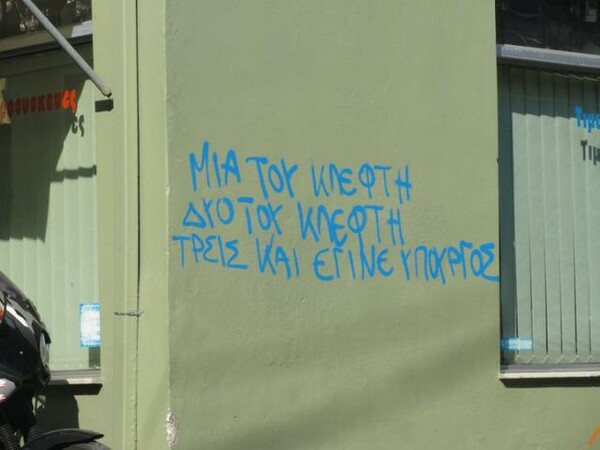 ΜΙΑ ΤΟΥ ΚΛΕΦΤΗ
ΔΥΟ ΤΟΥ ΚΛΕΦΤΗ
ΤΡΕΙΣ ΚΑΙ ΕΓΙΝΕ ΥΠΟΥΡΓΟΣ